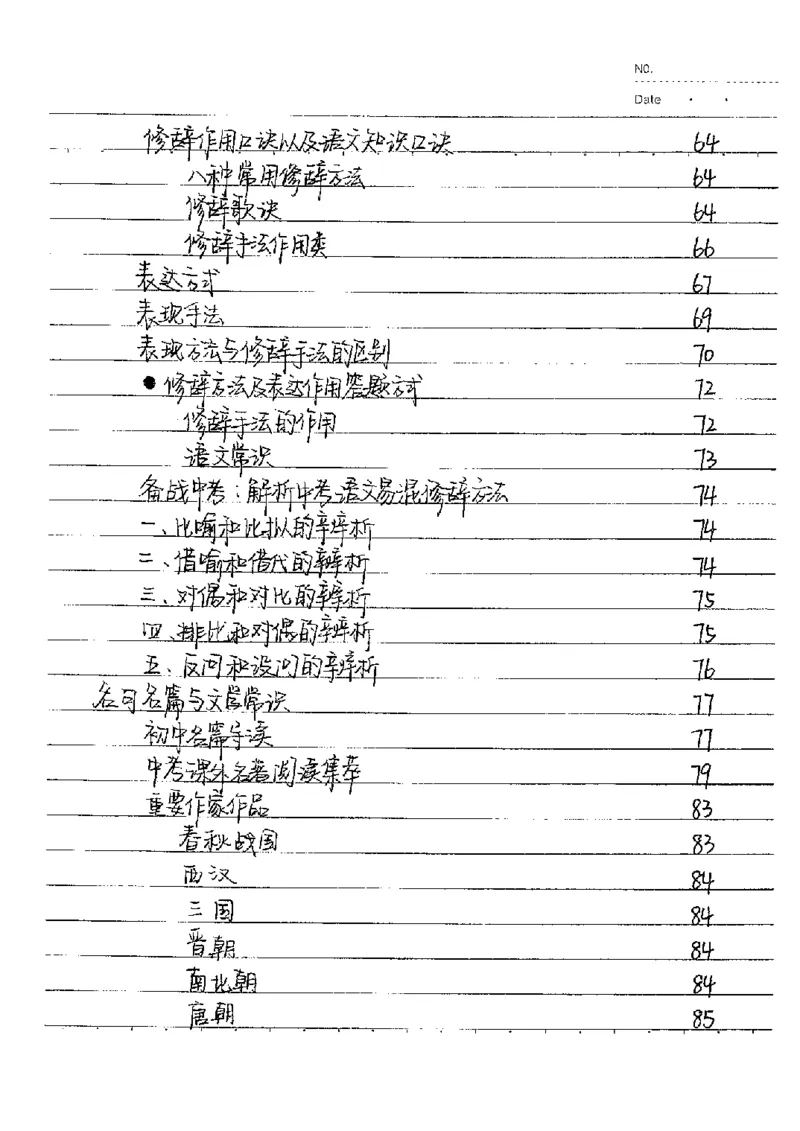 NO.
Date · ·
修辞作用口诀以及语文知识口诀 64
八种常用修辞方法 64
修辞歌诀 64
修辞手法作用类 66
表达方式 67
表现手法 69
表现方法与修辞手法的区别 70
● 修辞方法及表达作用答题方式 72
修辞手法的作用 72
语文常识 73
备战中考：解析中考语文易混修辞方法 74
一、比喻和比拟的辨析 74
二、借喻和借代的辨析 74
三、对偶和对比的辨析 75
四、排比和对偶的辨析 75
五、反问和设问的辨析 76
名句名篇与文学常识 77
初中名篇导读 77
中考课外名著阅读集萃 79
重要作家作品 83
春秋战国 83
西汉 84
三国 84
晋朝 84
南北朝 84
唐朝 85